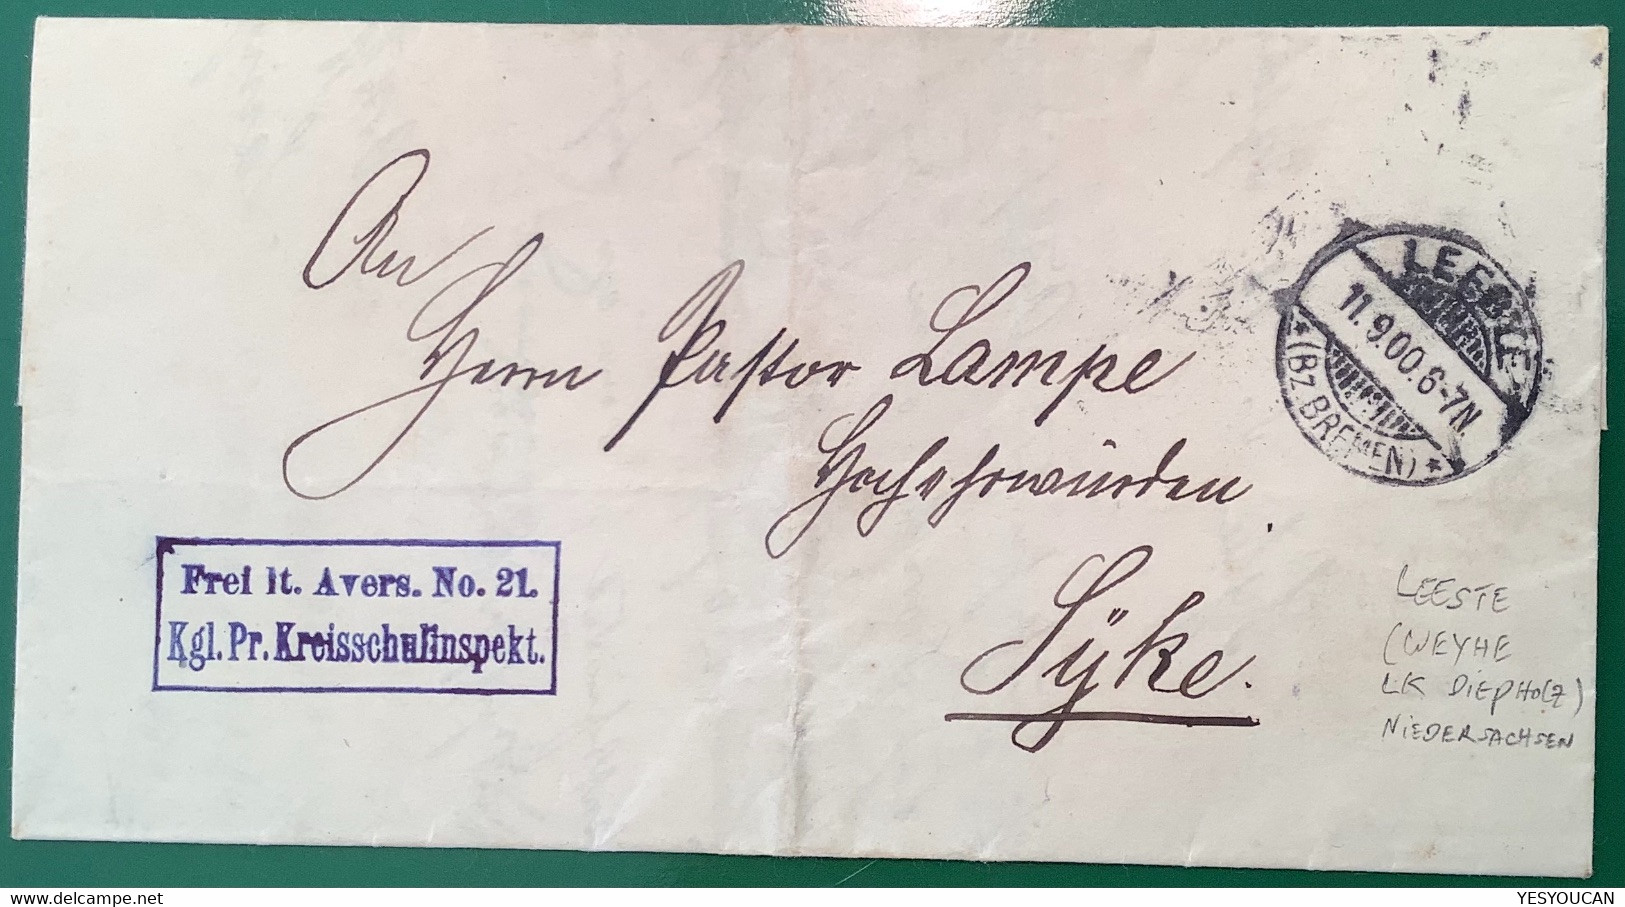 An
Herrn Pastor Lampe
Hochehrwürden
Syke.
Frei lt. Avers. No. 21.
Kgl. Pr. Kreisschulinspekt.
LEESTE
11.9.00.6-7N
*(BZ. BREMEN)*
LEESTE
(WEYHE
LK DIEPHOLZ)
NIEDERSACHSEN
YESYOUCAN